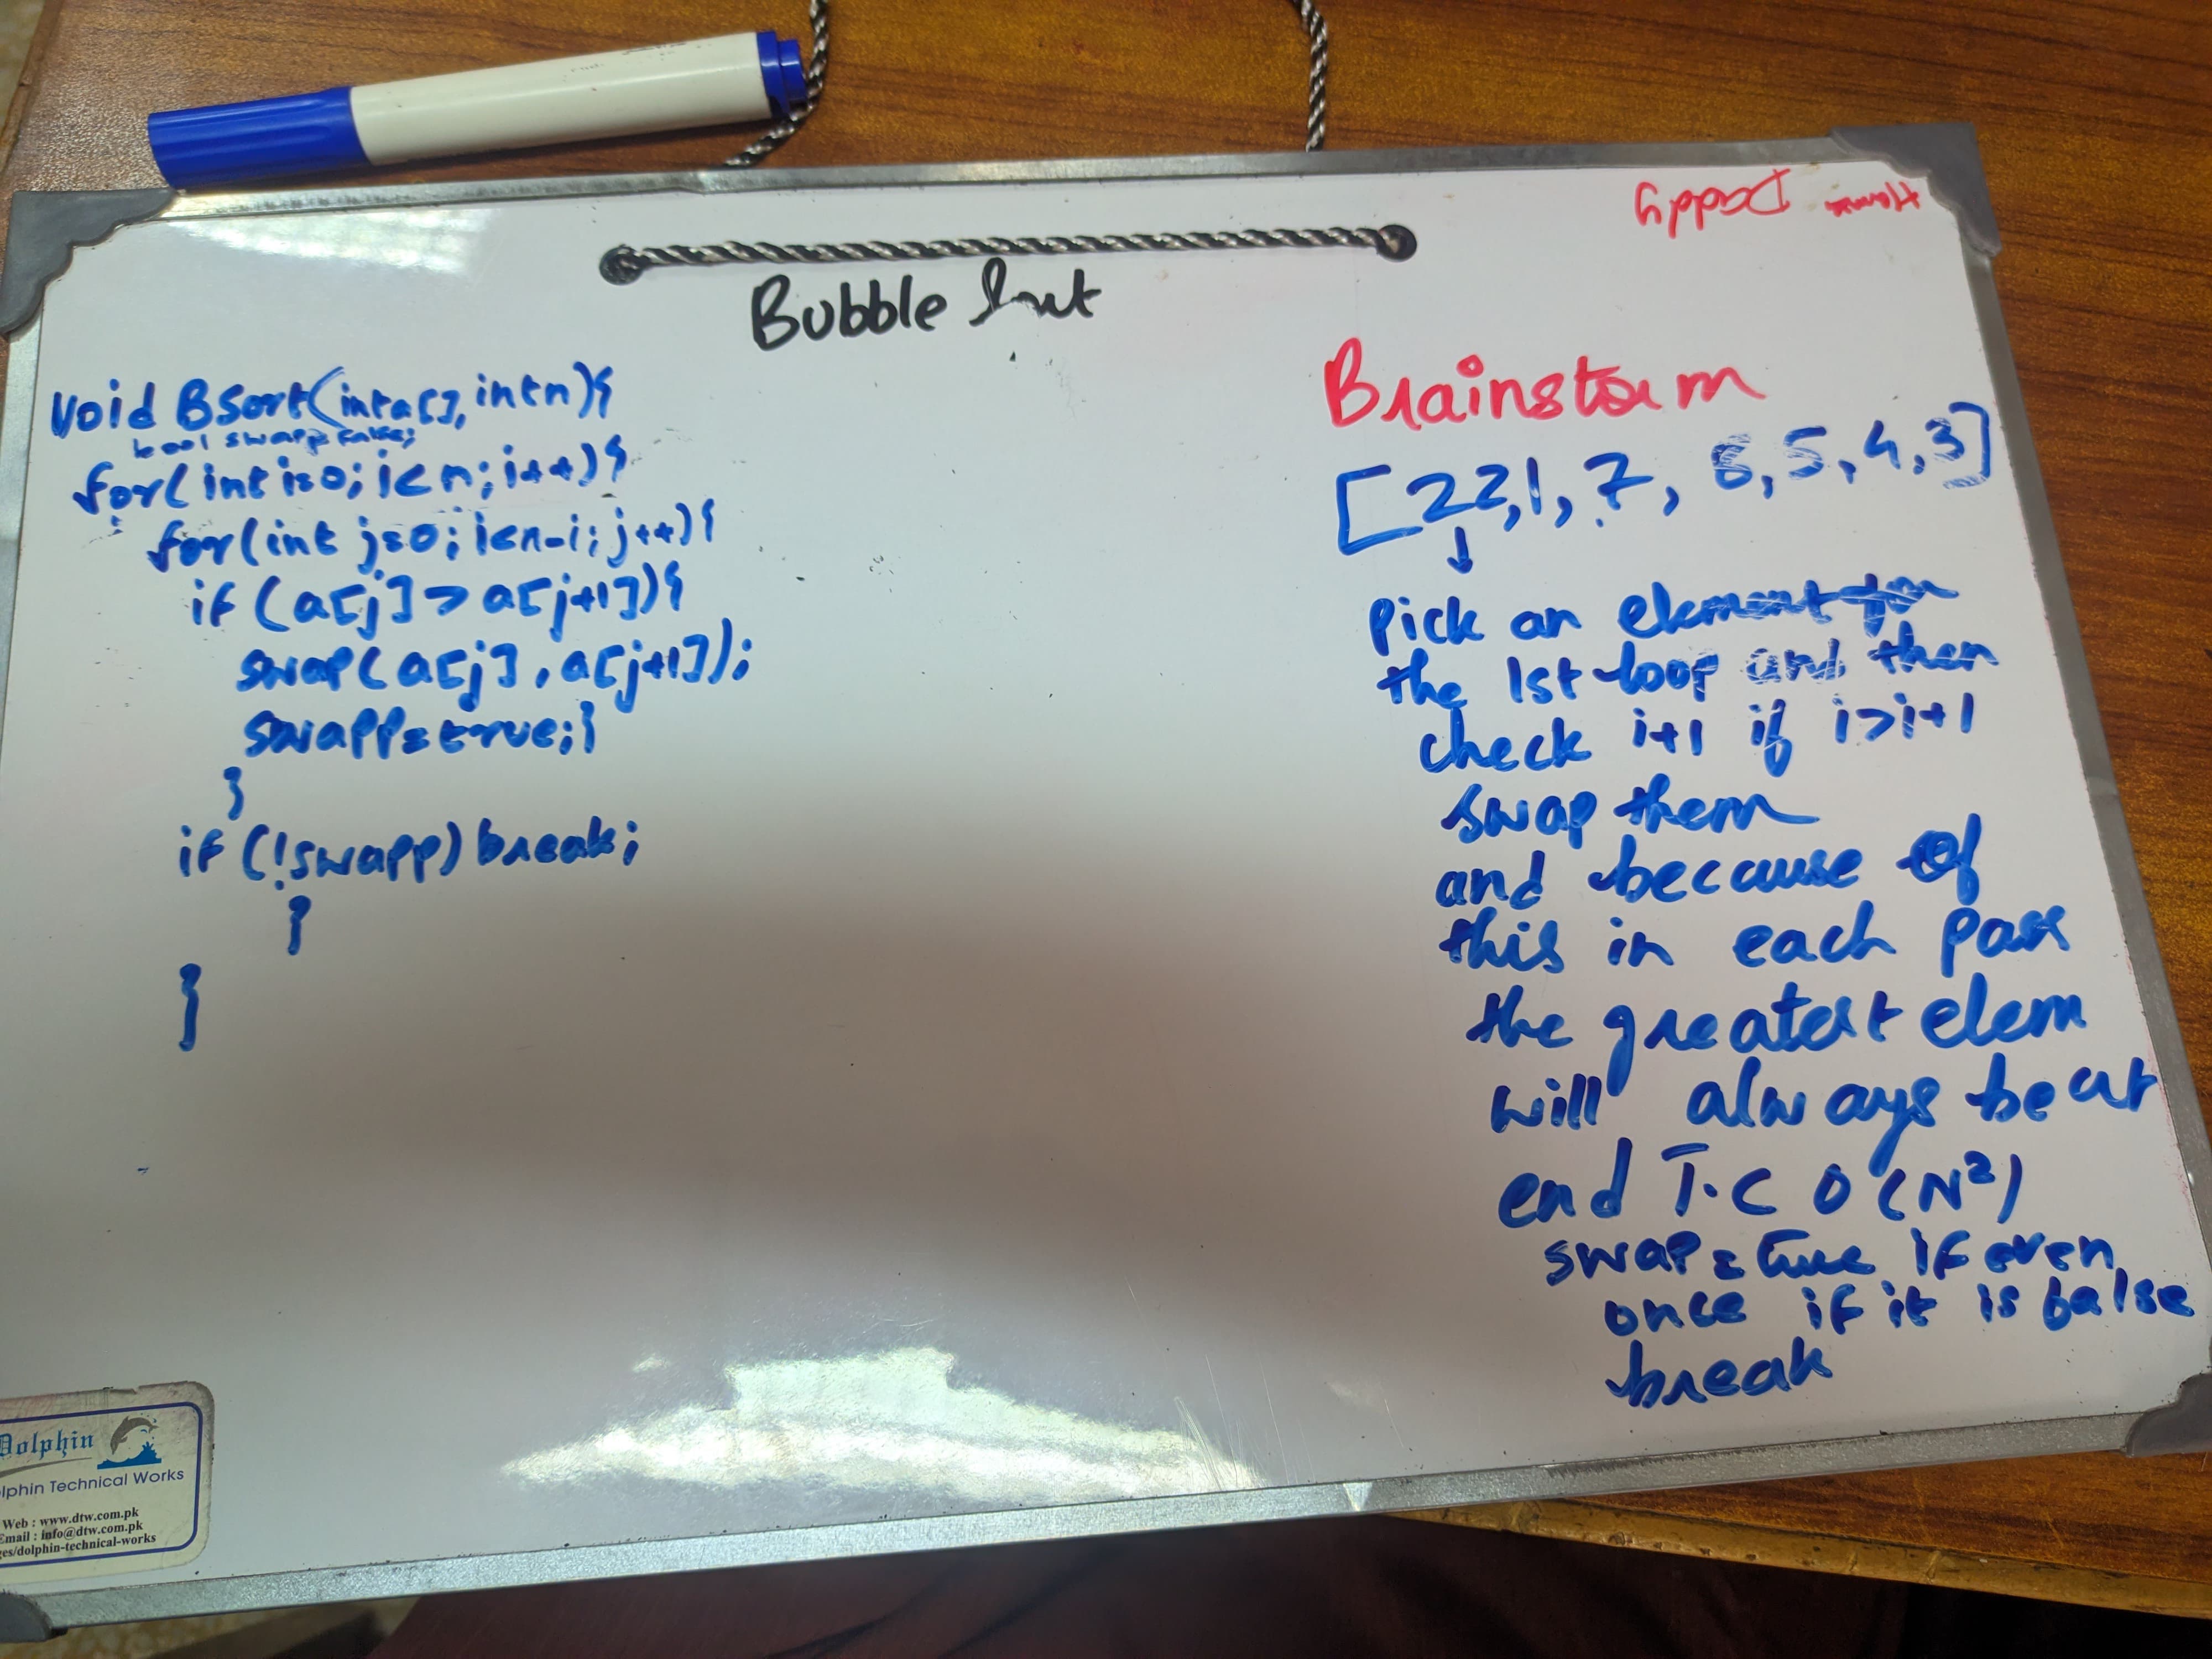 Hamna Daddy
Bubble Sort
void BSort(int a[], int n){
bool swapp=false;
for(int i=0; i<n; i++){
for(int j=0; i<n-i; j++){
if (a[j] > a[j+1]){
swap(a[j], a[j+1]);
swapp=true;}
}
if (!swapp) break;
}
}
Brainstorm
[22,1,7, 6,5,4,3]
↓
Pick an element for
the 1st loop and then
check i+1 if i>i+1
swap them
and because of
this in each pass
the greatest elem
will always be at
end T.C O(N²)
swap=True if even
once if it is balse
break
Dolphin
lphin Technical Works
Web : www.dtw.com.pk
Email : info@dtw.com.pk
ges/dolphin-technical-works